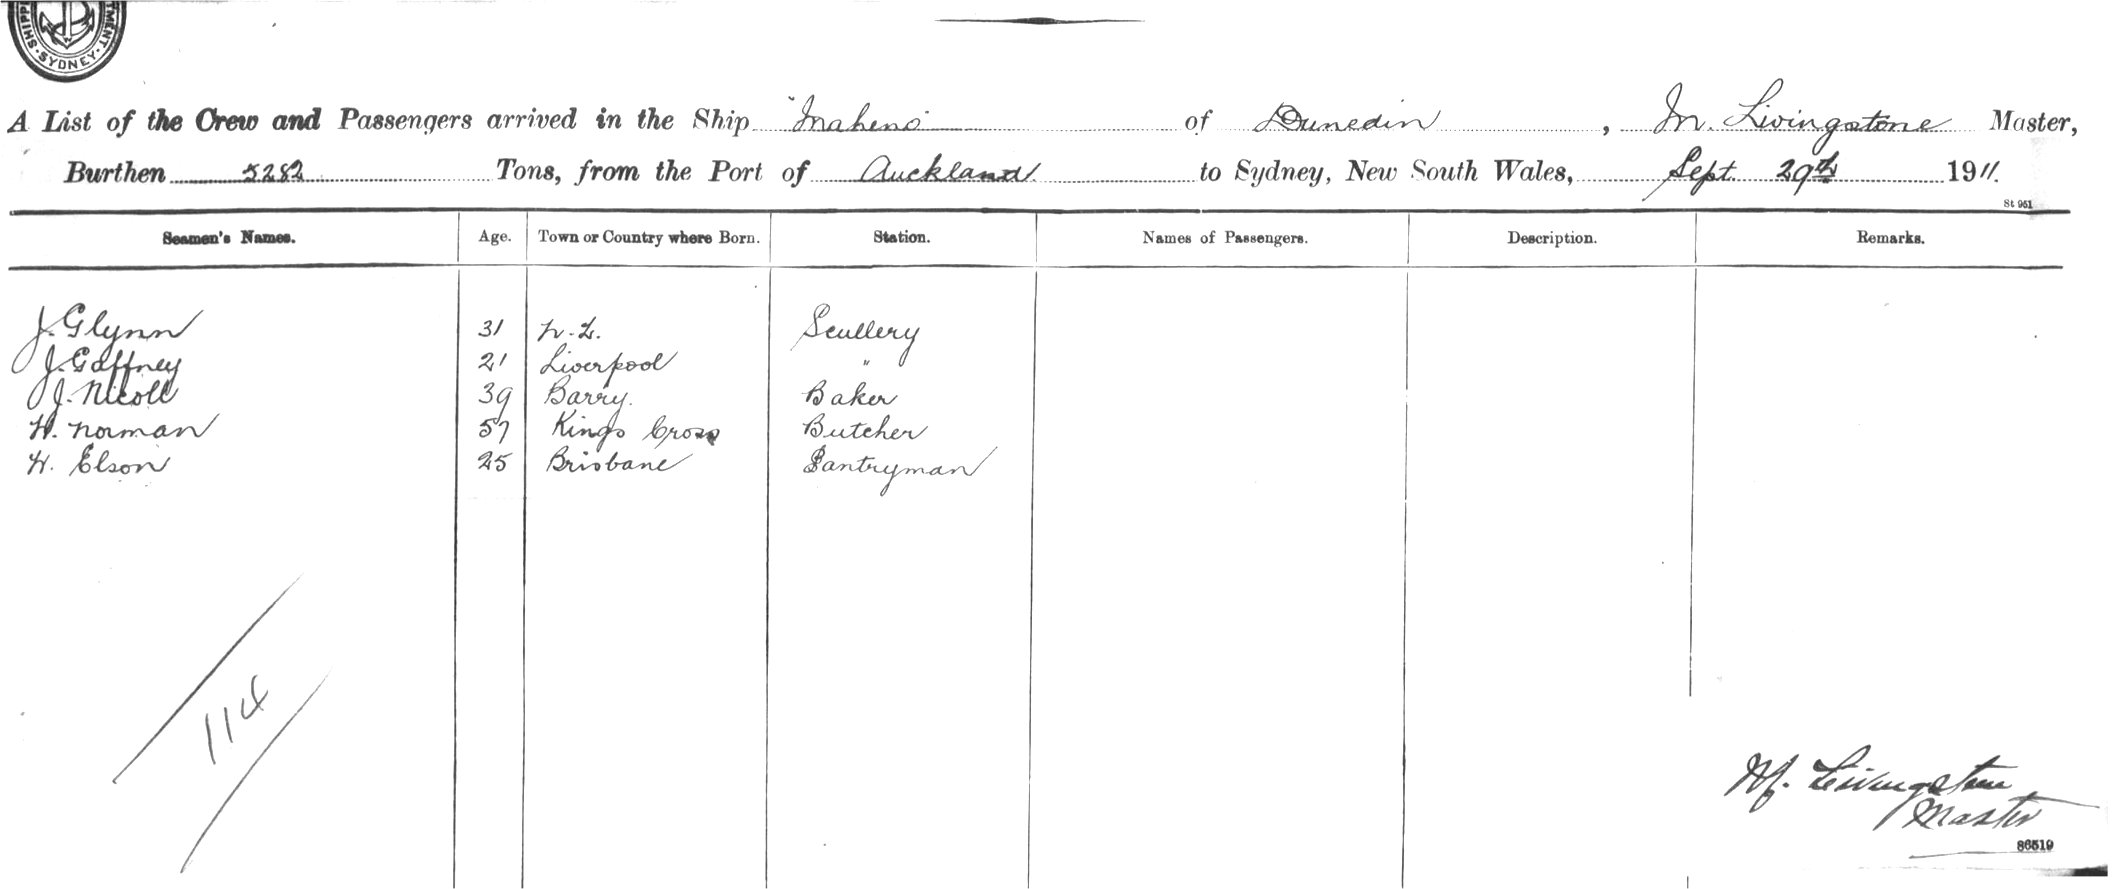 SHIPPI TMENT · SYDNEY ·
A List of the Crew and Passengers arrived in the Ship "Maheno" of Dunedin, M. Livingstone Master,
Burthen 5282 Tons, from the Port of Auckland to Sydney, New South Wales, Sept 29th 1911.
St 951
Seamen's Names. Age. Town or Country where Born. Station. Names of Passengers. Description. Remarks.
J. Glynn 31 N.Z. Scullery
J. Gaffney 21 Liverpool "
J. Nicoll 39 Barry. Baker
H. Norman 57 Kings Cross Butcher
H. Elson 25 Brisbane Pantryman
114
M. Livingstone
Master
86519